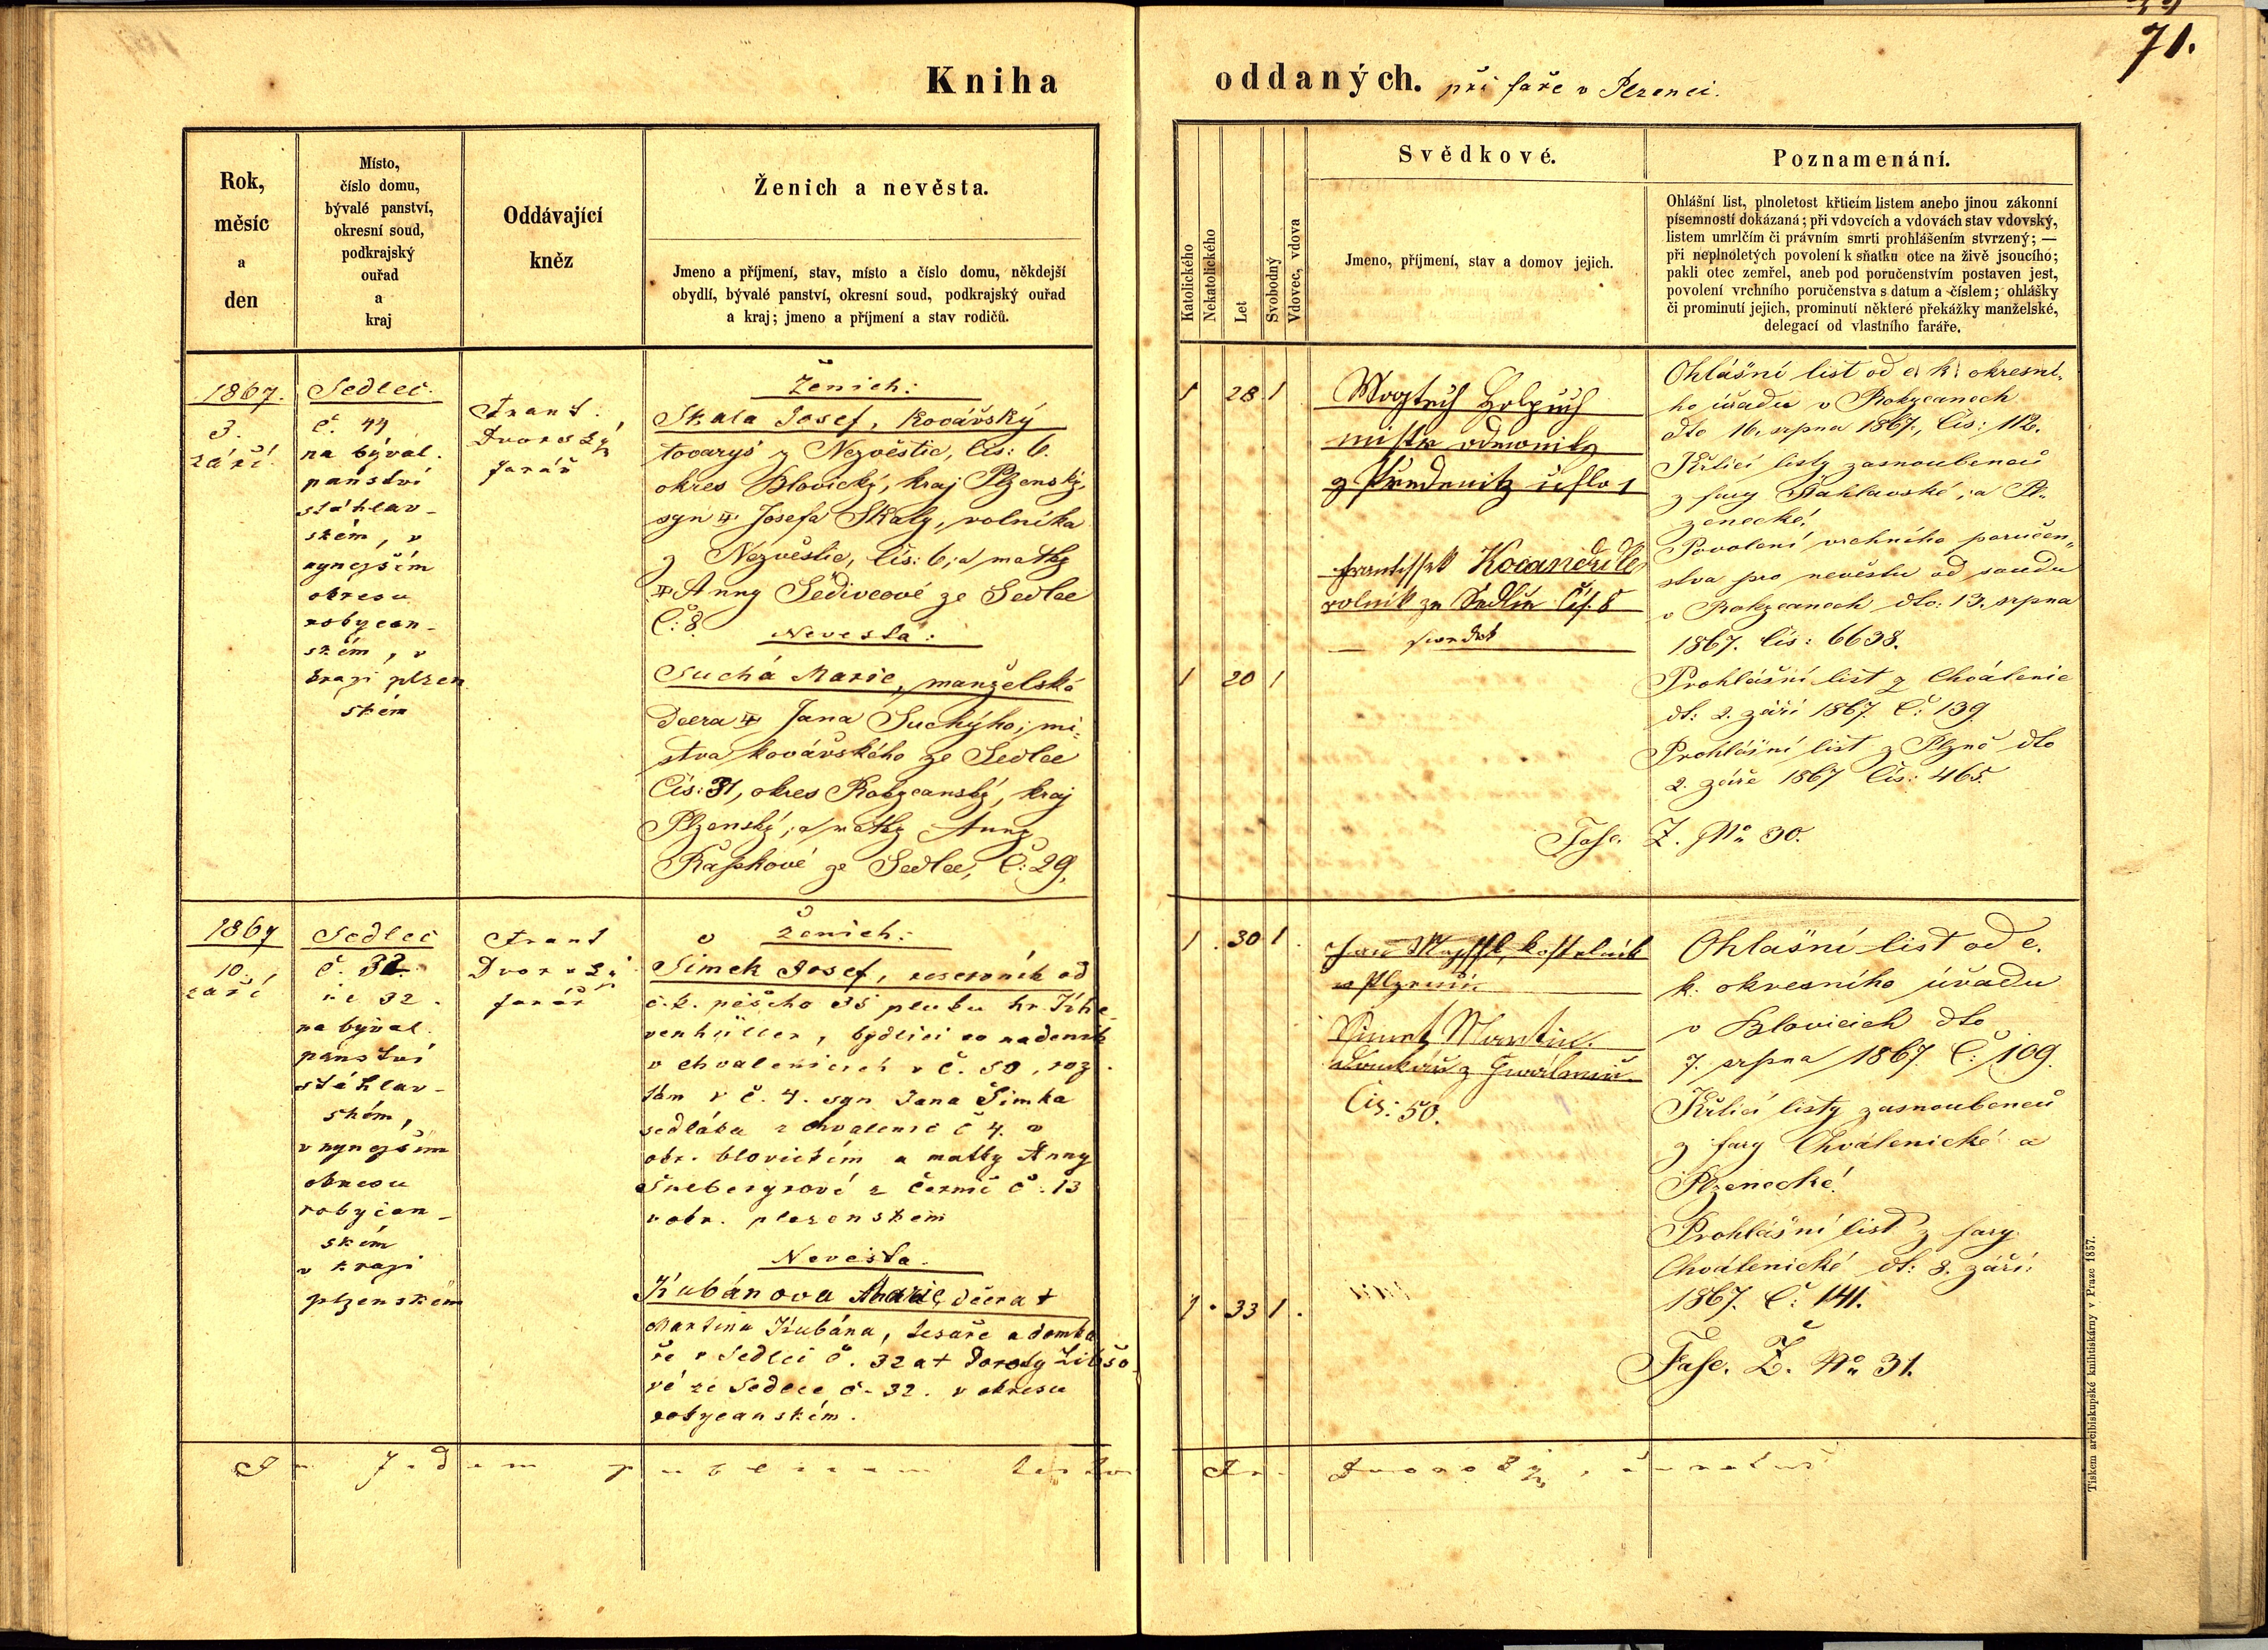 71.
Kniha
oddaných. při faře v Plzenci.
Rok,
měsíc
a
den
Místo,
číslo domu,
bývalé panství,
okresní soud,
podkrajský
ouřad
a
kraj
Oddávající
kněz
Ženich a nevěsta.
Jmeno a příjmení, stav, místo a číslo domu, někdejší
obydlí, bývalé panství, okresní soud, podkrajský ouřad
a kraj; jmeno a příjmení a stav rodičů.
Katolického
Nekatolického
Let
Svobodný
Vdovec, vdova
Svědkové.
Jmeno, příjmení, stav a domov jejich.
Poznamenání.
Ohlášní list, plnoletost křticím listem anebo jinou zákonní
písemností dokázaná; při vdovcích a vdovách stav vdovský,
listem umrlčím či právním smrti prohlášením stvrzený; —
při neplnoletých povolení k sňatku otce na živě jsoucího;
pakli otec zemřel, aneb pod poručenstvím postaven jest,
povolení vrchního poručenstva s datum a číslem; ohlášky
či prominutí jejich, prominutí některé překážky manželské,
delegací od vlastního faráře.
1867.
3.
září.
Sedlec
č. 44
na býval.
panství
stáhlav-
ském, v
nynejším
okresu
rokycan-
ském, v
kraji plzen
ském
Frant.
Dvorský
farář
Ženich:
Skala Josef, kovářský
tovaryš z Nezvěstic, čís: 6.
okres Blovický, kraj Plzenský,
syn Josefa Skaly, rolníka
z Nezvěstic, čís: 6; a matky
Anny Šedivcové ze Sedlce
Č: 8.
Nevesta:
Suchá Marie, manželská
dcera Jana Suchýho, mi-
stra kovářského ze Sedlce
Čís: 31, okres Rokycanský, kraj
Plzenský, a matky Anny
Kaškové ze Sedlce, Č: 29.
1 28 1
1 20 1
mistr
1
Frantissek Kocandrle
rolník ze Sedlce čís. 8
swedek
Ohlášní list od c. k. okresní-
ho úřadu v Rokycanech
dto 16. srpna 1867, Čís: 112.
Křticí listy zasnoubenců
z fary Štáhlavské, a Pl-
zenecké.
Povolení vrchního poručen-
stva pro nevěstu od soudu
v Rokycanech dto: 13. srpna
1867. Čís: 6638.
Prohlášní list z Chválenic
dt: 2. září 1867. Č: 139
Prohlášní list z Plzně dto
2. záře 1867 Čís: 465.
Fasc. Z. No 30.
1867
10.
září
Sedlec
č. 32.
na býval.
panství
stáhlav-
ském,
v nynejším
okresu
rokycan-
ském
v kraji
plzenském
Frant
Dvorský
farář
Ženich:
Šimek Josef, reservník od
c. k. pěšího 35 pluku hr. Khe-
venhüller, bydlící co nadeník
v Chvalenicích v č. 50, roz.
tám v č. 4. syn Jana Šimka
sedláka z Chvalenic č 4. v
okr. blovickém a matky Anny
Šnebergrové z Černic č. 13
v okr. plzenském
Nevesta.
Kubánova Marie, dcera †
Martina Kubána, tesaře a domka
ře v Sedlci č. 32 a † Doroty
vé ze Sedlce č. 32. v okresu
rokycanském.
1 . 30 1 .
1 . 33 1 .
Jan kostelník
v Plzenci
Šimek Martin
z
Čís: 50.
Ohlašní list od c.
k. okresního úřadu
v Blovicích dto
7. srpna 1867 Č: 109.
Křticí listy zasnoubenců
z fary Chválenické a
Plzenecké.
Prohlášní list z fary
Chválenické dt: 8. září:
1867. Č: 141.
Fasc. Z. No 31.
In fidem publicam testor
Fr. Dvorský,
Tiskem arcibiskupské knihtiskárny v Praze 1857.